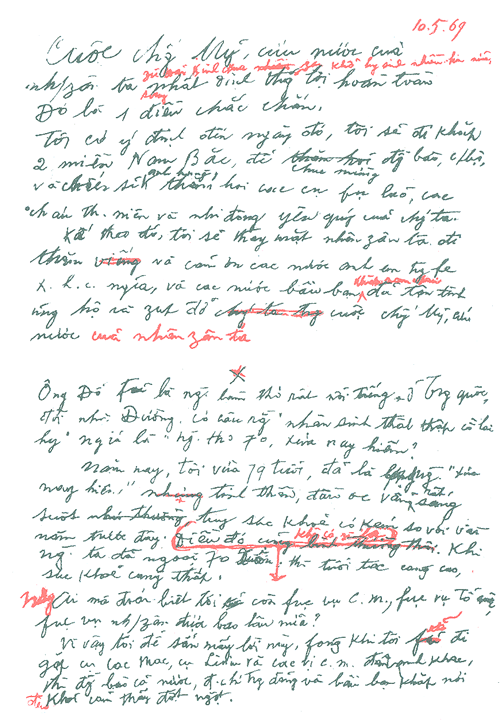 10.5.69
Cuộc chống Mỹ, cứu nước của
zù fải kinh qua nhiều hy sinh nhiều hơn nữa,
nh/zân ta nhất định thắng lợi hoàn toàn
Đó là 1 điều chắc chắn.
Tôi có ý định đến ngày đó, tôi sẽ đi khắp
2 miền Nam Bắc, để chúc mừng đ/bào, c/bộ,
và chiến sĩ anh hùng thăm hỏi các cụ fụ lão, các
cháu th. niên và nhi đồng yêu quý của ch/ta.
Kế theo đó, tôi sẽ thay mặt nhân zân ta đi
thăm và cảm ơn các nước anh em trg fe
x.h.c. nghĩa, và các nước bầu bạn đã tận tình
ủng hộ và zúp đỡ cuộc chg Mỹ, cứu
nước của nhân zân ta
x
Ông Đỗ Fủ là ng làm thơ rất nổi tiếng ở Trg quốc,
đời nhà Đường. Có câu rằng "nhân sinh thất thập cổ lai
hy" nghĩa là "ng thọ 70, xưa nay hiếm".
Năm nay, tôi vừa 79 tuổi, đã là "xưa
nay hiếm" tinh thần, đầu óc vẫn sáng
suốt tuy sức khoẻ có kém so với vài
năm trước đây. Khi
ng ta đã ngoài 70 xuân, thì tuổi tác càng cao,
sức khoẻ càng thấp.
Ai mà đoán biết tôi còn fục vụ C.M., fục vụ Tổ quốc,
fục vụ nh/zân được bao lâu nữa?
Vì vậy tôi để sẵn mấy lời này, fòng khi tôi sẽ đi
gặp cụ Các Mác, cụ Lênin và các vị c.m. đàn anh khác,
thì đg bào cả nước, đ.chí trg đảng và bầu bạn khắp nơi
đều khỏi cảm thấy đột ngột.